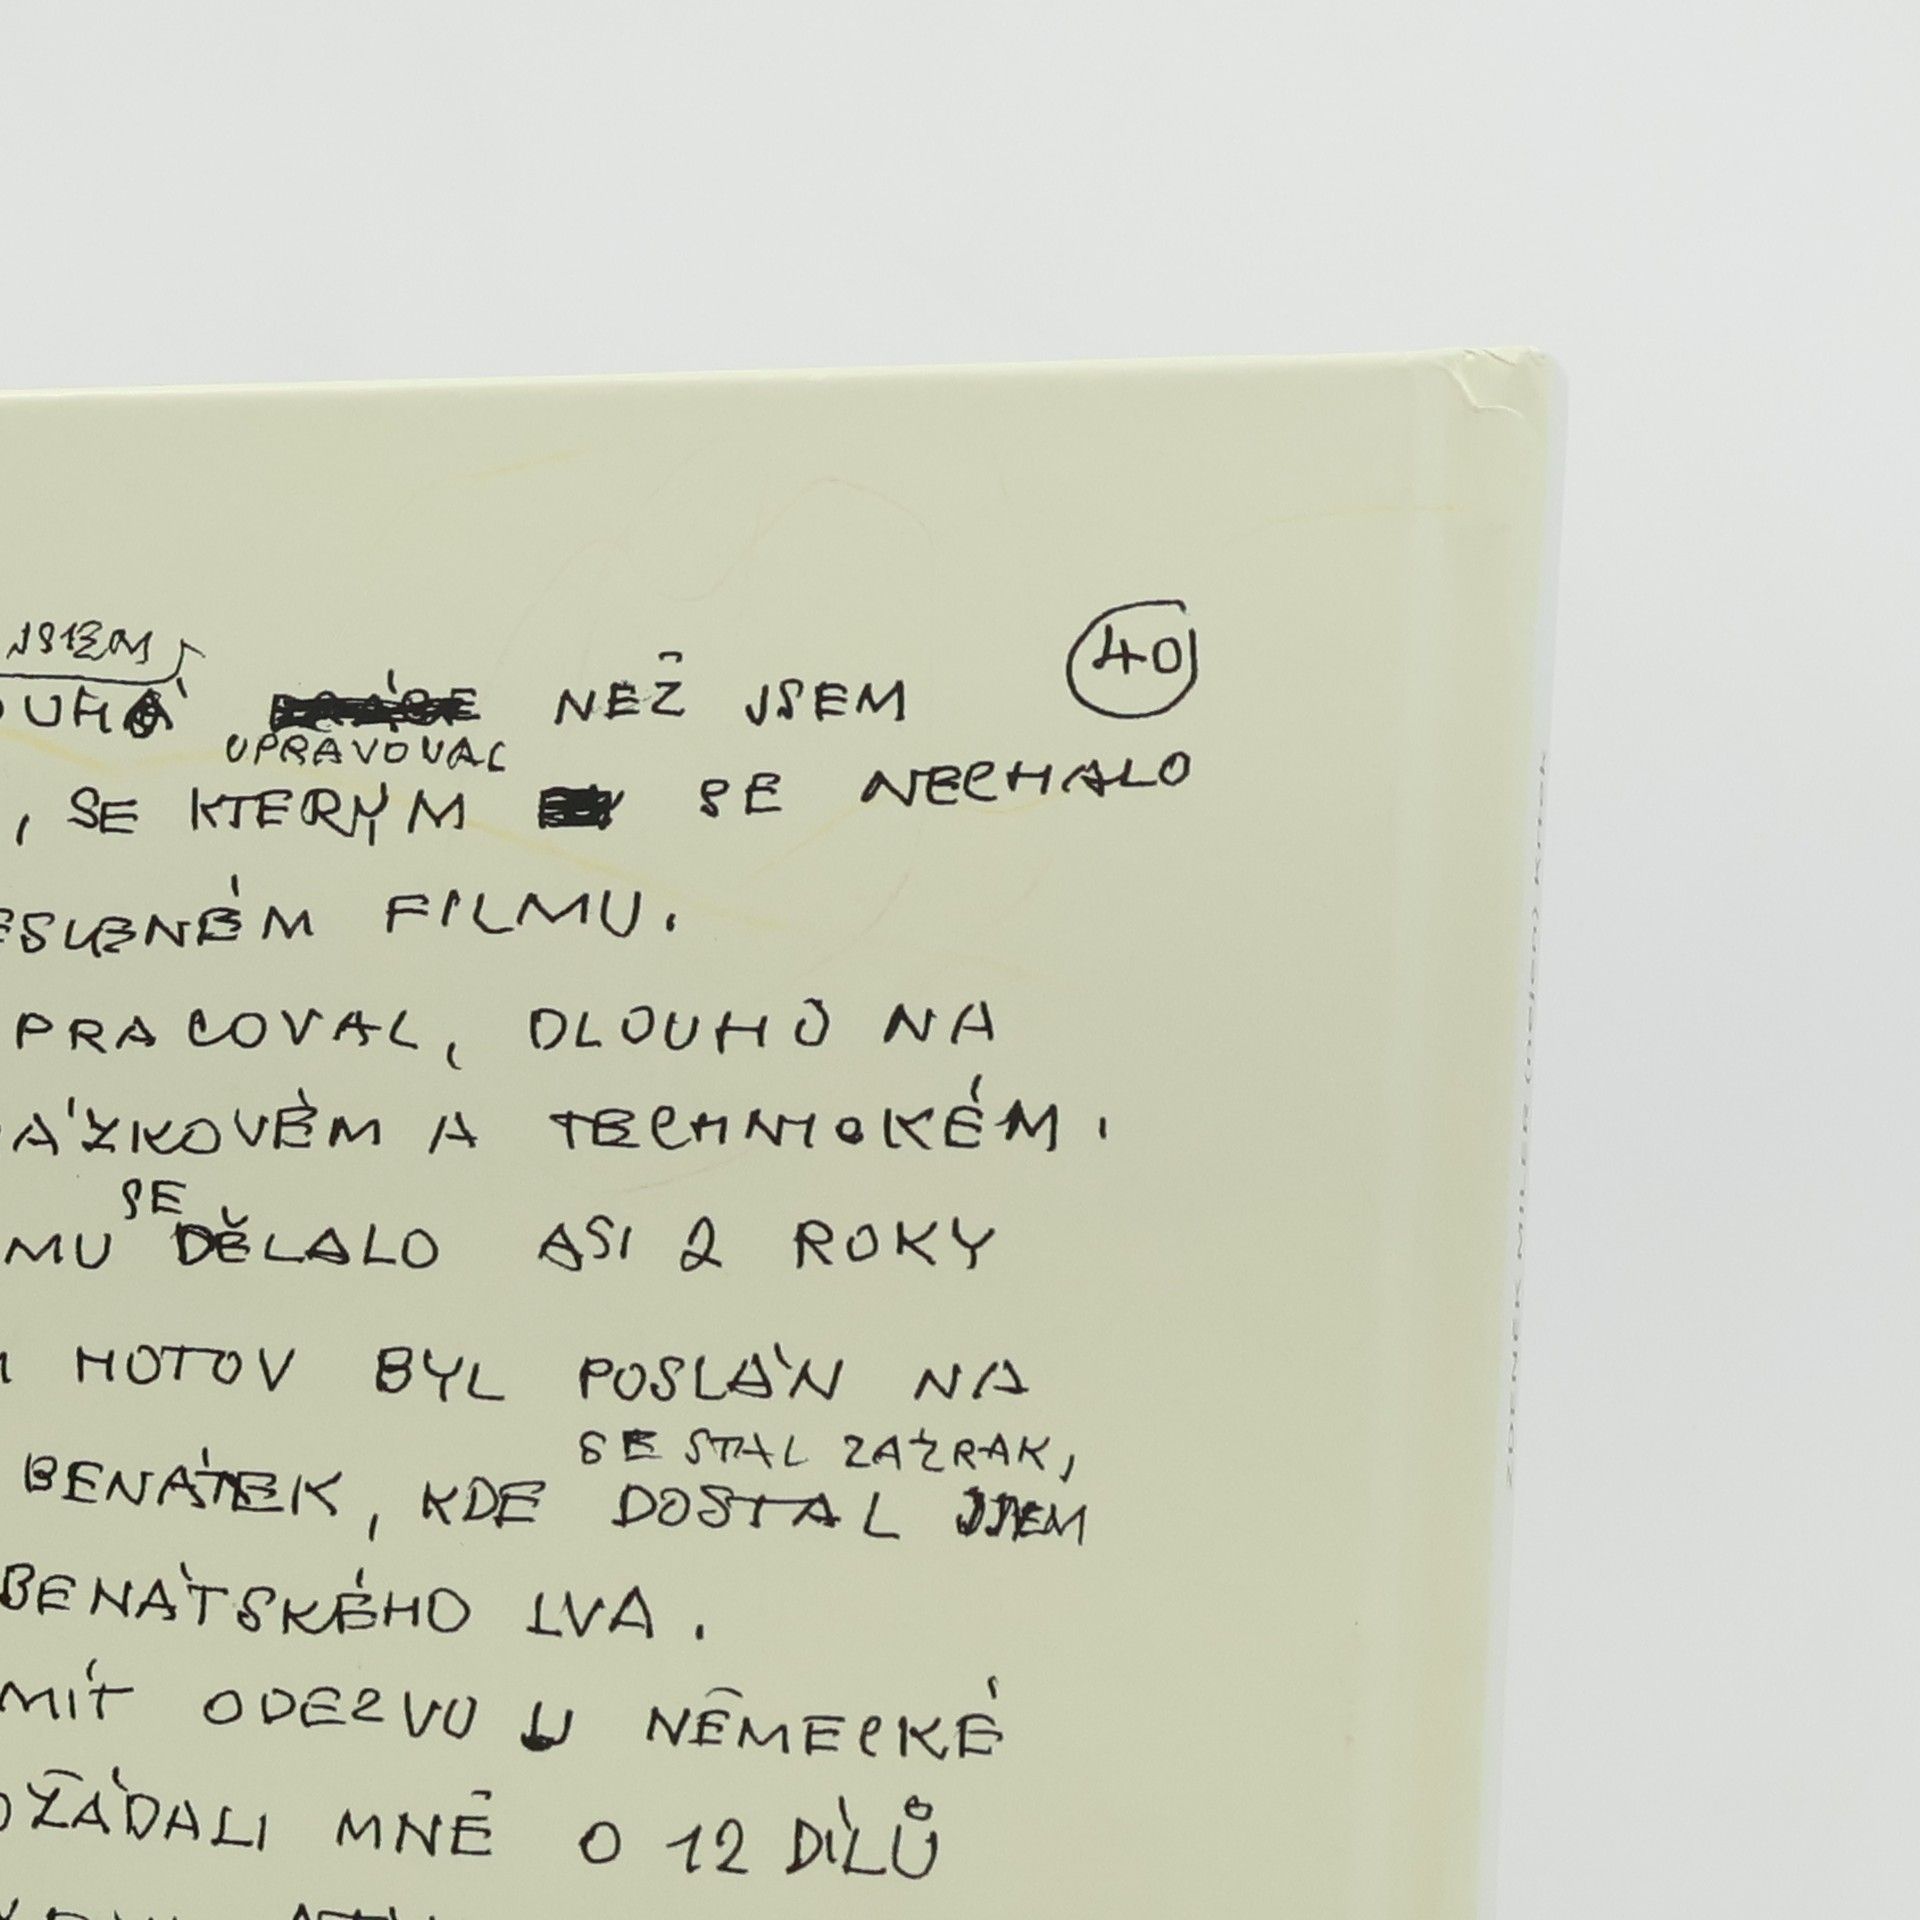 JSEM
40
NEŽ JSEM
UPRAVOVAL
, SE KTERÝM SE NECHALO
FILMU.
PRACOVAL, DLOUHO NA
A TECHNICKÉM.
SE
DĚLALO ASI 2 ROKY
HOTOV BYL POSLÁN NA
SE STAL ZÁZRAK,
BENÁTEK, KDE DOSTAL JSEM
BENÁTSKÉHO LVA.
MÍT ODEZVU U NĚMECKÉ
MNĚ O 12 DÍLŮ
ZDENĚK MILER